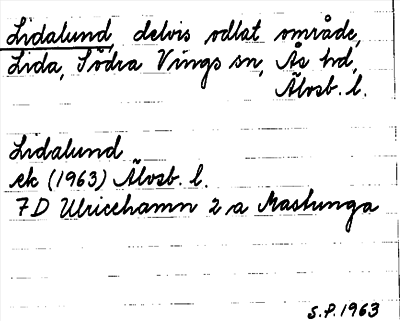 Lidalund, delvis odlat område,
Lida, Södra Vings sn, Ås hd,
Älvsb. l.
Lidalund
ek (1963) Älvsb. l.
7D Ulricehamn 2 a Mastunga
S.P. 1963